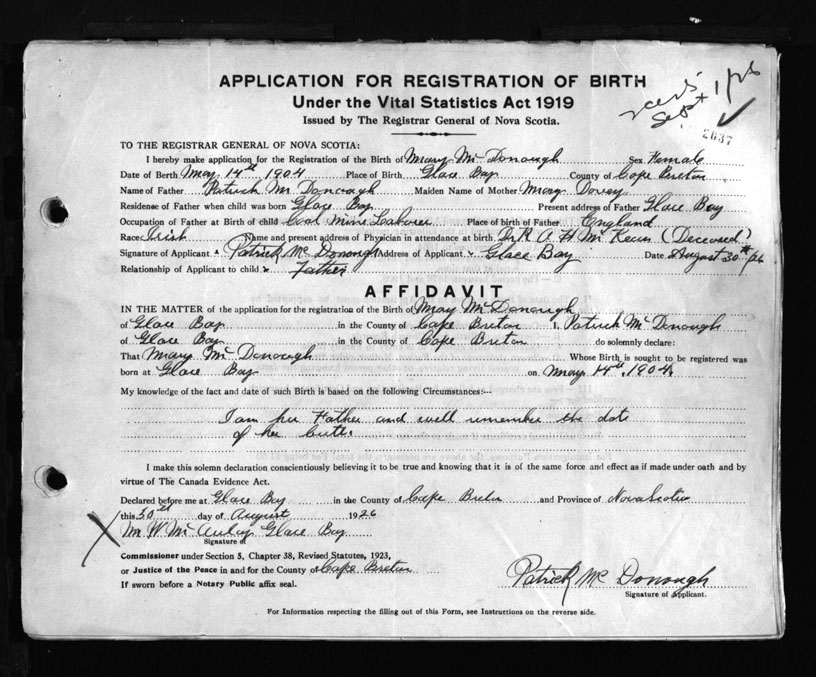 APPLICATION FOR REGISTRATION OF BIRTH
Under the Vital Statistics Act 1919
Issued by The Registrar General of Nova Scotia.
Sept 1/26
2637
TO THE REGISTRAR GENERAL OF NOVA SCOTIA:
I hereby make application for the Registration of the Birth of Mary McDonough Sex Female
Date of Birth May 14th 1904 Place of Birth Glace Bay County of Cape Breton
Name of Father Patrick McDonough Maiden Name of Mother Mary Dovey
Residene of Father when child was born Glace Bay Present address of Father Glace Bay
Occupation of Father at Birth of child Coal Mine Place of birth of Father England
Race Irish Name and present address of Physician in attendance at birth Dr A H McKeen (Deceased)
Signature of Applicant Patrick McDonough Address of Applicant Glace Bay Date August 30th/26
Relationship of Applicant to child Father
AFFIDAVIT
IN THE MATTER of the application for the registration of the Birth of Mary McDonough
of Glace Bay in the County of Cape Breton I, Patrick McDonough
of Glace Bay in the County of Cape Breton do solemnly declare:
That Mary McDonough Whose Birth is sought to be registered was
born at Glace Bay on May 14th, 1904.
My knowledge of the fact and date of such Birth is based on the following Circumstances:--
I am her Father and well remember the date
of her birth.
I make this solemn declaration conscientiously believing it to be true and knowing that it is of the same force and effect as if made under oath and by
virtue of The Canada Evidence Act.
Declared before me at Glace Bay in the County of Cape Breton and Province of Nova Scotia
this 30th day of August 1926
X Glace Bay
Signature of
Commissioner under Section 5, Chapter 38, Revised Statutes, 1923,
or Justice of the Peace in and for the County of Cape Breton
If sworn before a Notary Public affix seal.
Patrick McDonough
Signature of Applicant.
For Information respecting the filling out of this Form, see Instructions on the reverse side.